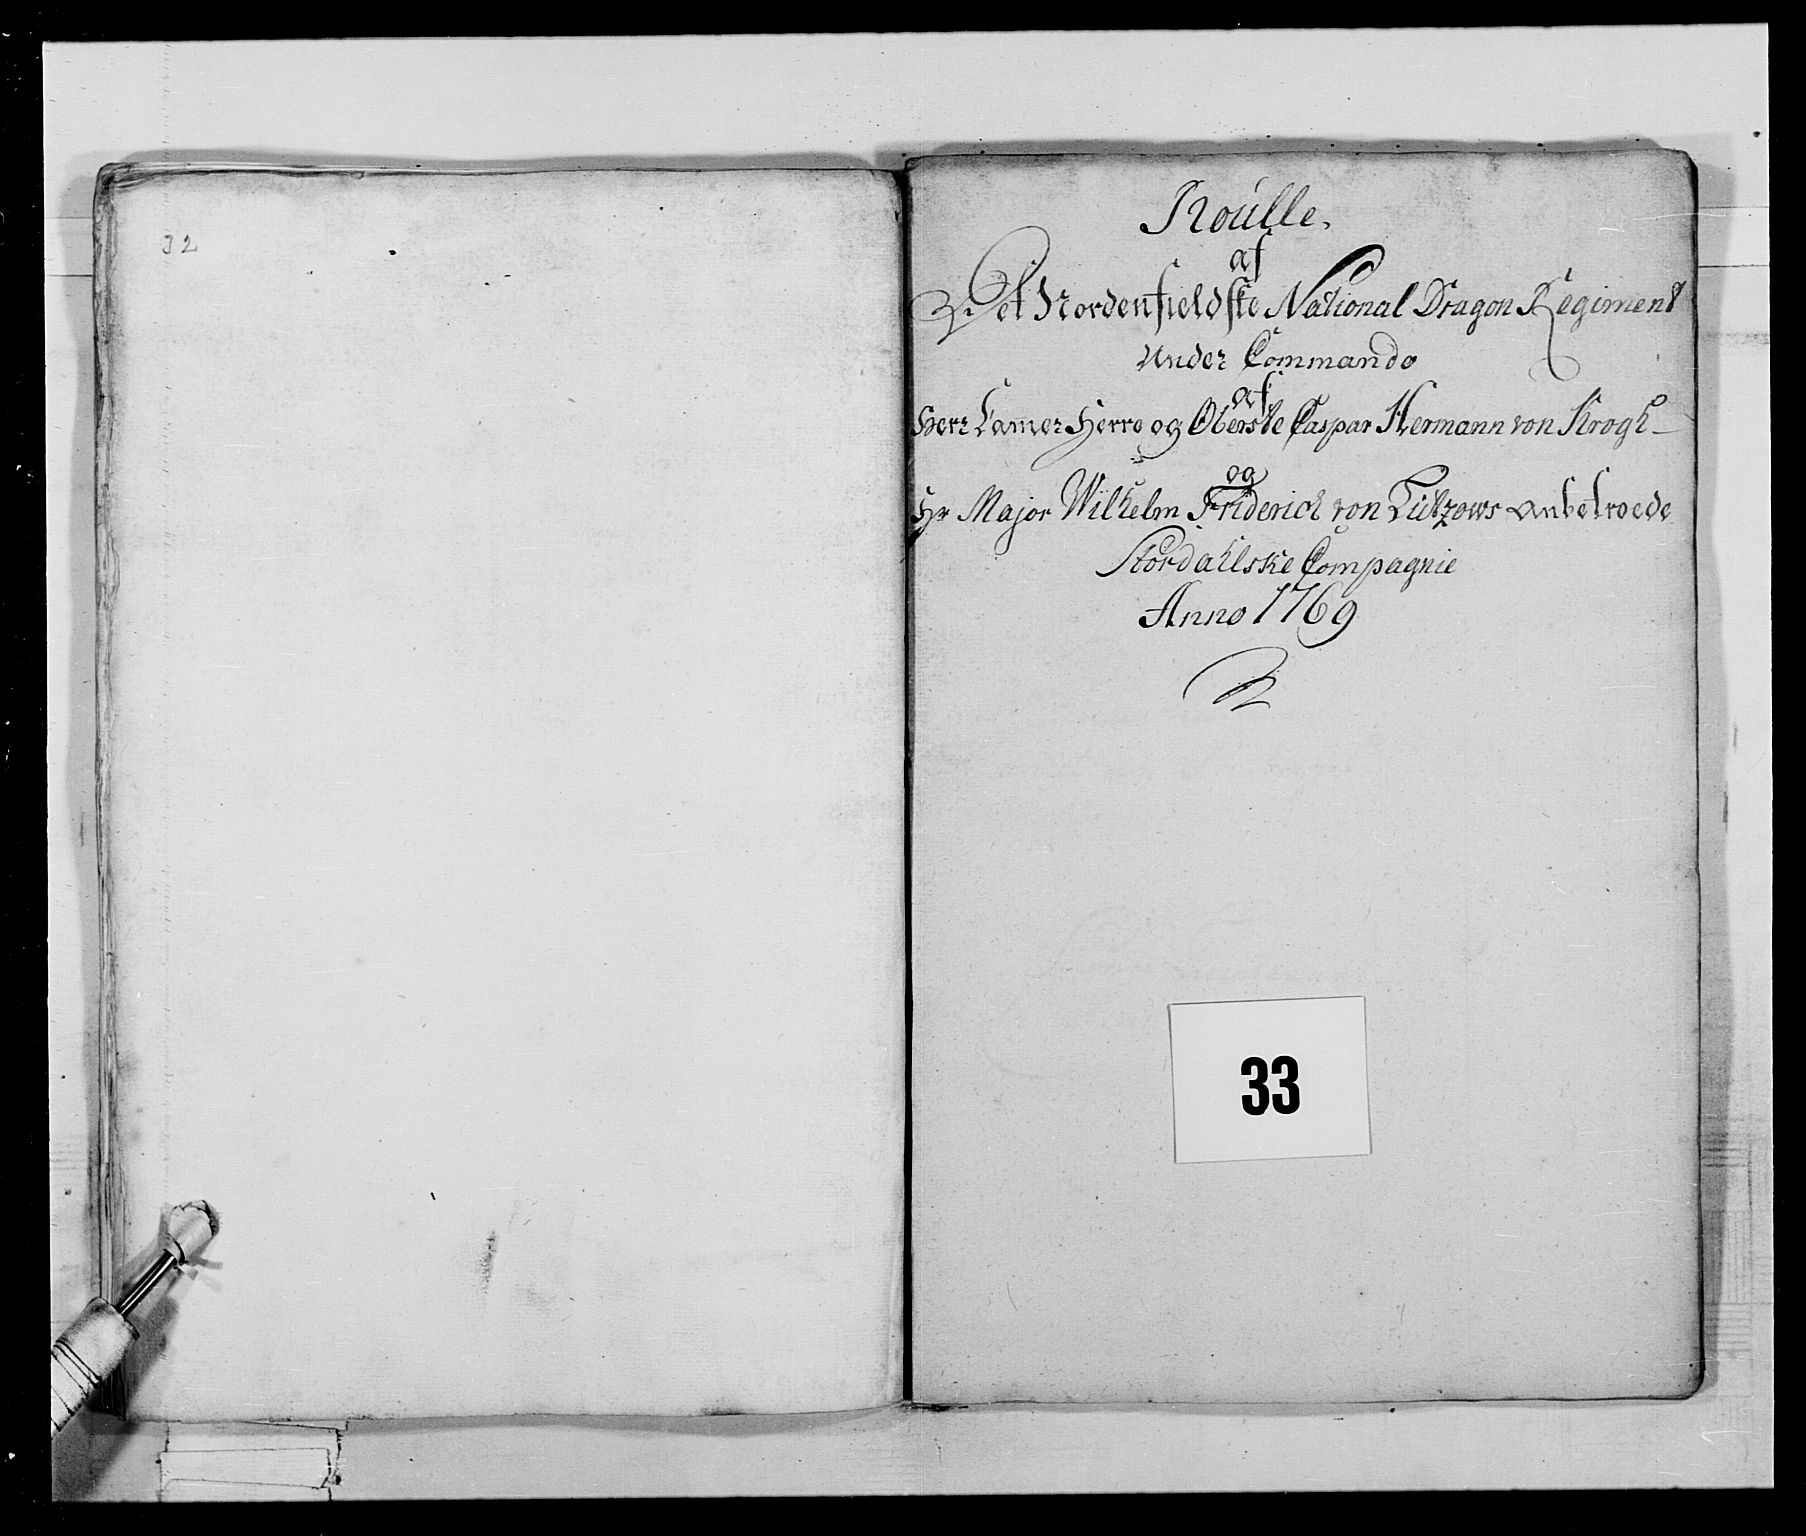 32
Roúlle.
af
Det Nordenfieldske National Dragon Regiment
Under Commando
af
Herr Camer Herre og Oberste Caspar Hermann von Krogh
og
Hr Major Wilhelm Friderich von Lützows anbetroede
Stordahlske Compagnie
Anno 1769
33